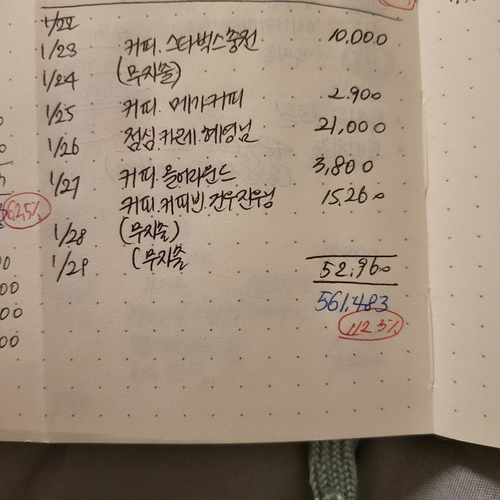 1/23 커피.스타벅스충전 10,000
1/24 (무지출)
1/25 커피.메가커피 2.900
1/26 점심.카레.혜영님 21,000
1/27 커피.올어라운드 3,800
커피.커피빈.건우진우님 15,260
1/28 (무지출)
1/29 (무지출
52,960
561,483
112.3%
62.5%